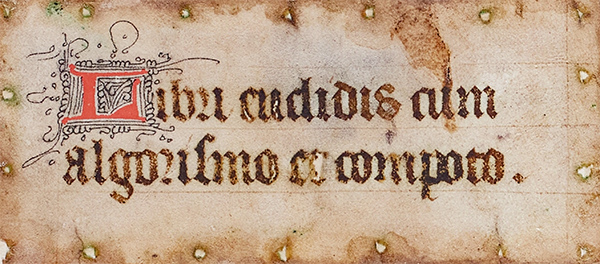 Libri euclidis cum
algorismo et compoto.